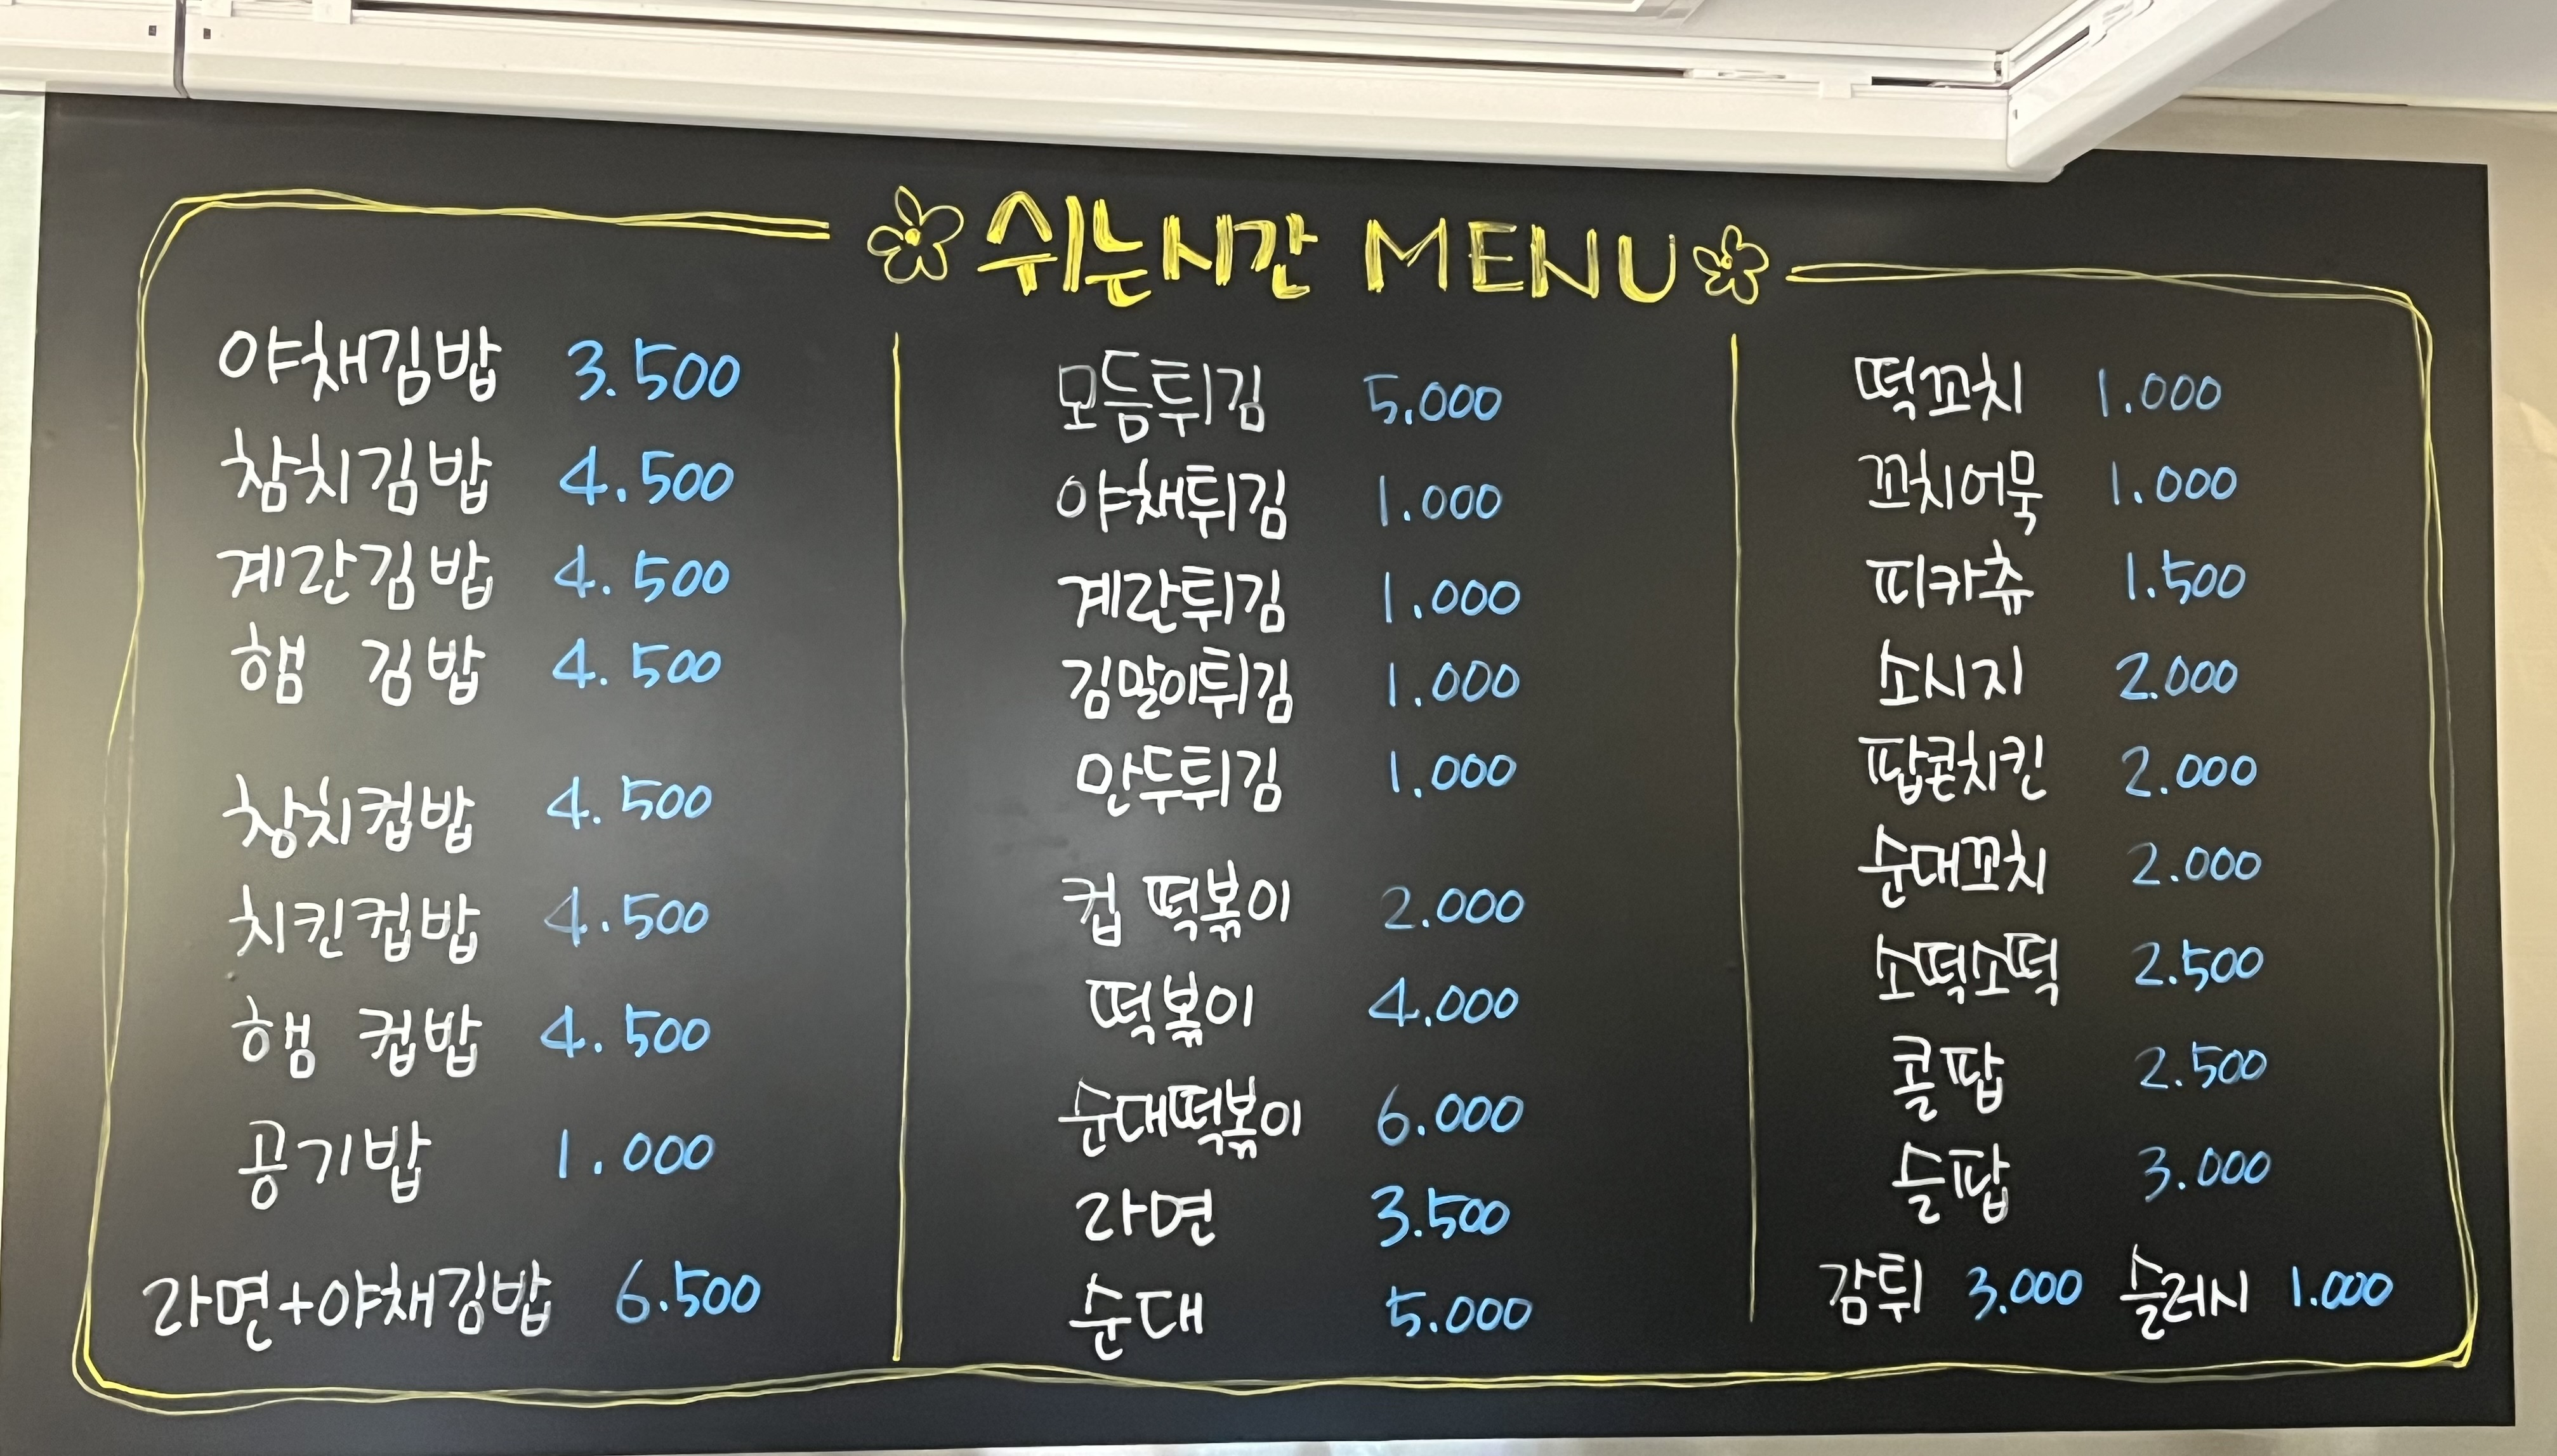 쉬는시간 MENU
야채김밥 3.500
참치김밥 4.500
계란김밥 4.500
햄 김밥 4.500
참치컵밥 4.500
치킨컵밥 4.500
햄 컵밥 4.500
공기밥 1.000
라면+야채김밥 6.500
모듬튀김 5.000
야채튀김 1.000
계란튀김 1.000
김말이튀김 1.000
만두튀김 1.000
컵 떡볶이 2.000
떡볶이 4.000
순대떡볶이 6.000
라면 3.500
순대 5.000
떡꼬치 1.000
꼬치어묵 1.000
피카츄 1.500
소시지 2.000
팝콘치킨 2.000
순대꼬치 2.000
소떡소떡 2.500
콜팝 2.500
슬팝 3.000
감튀 3.000 슬러시 1.000